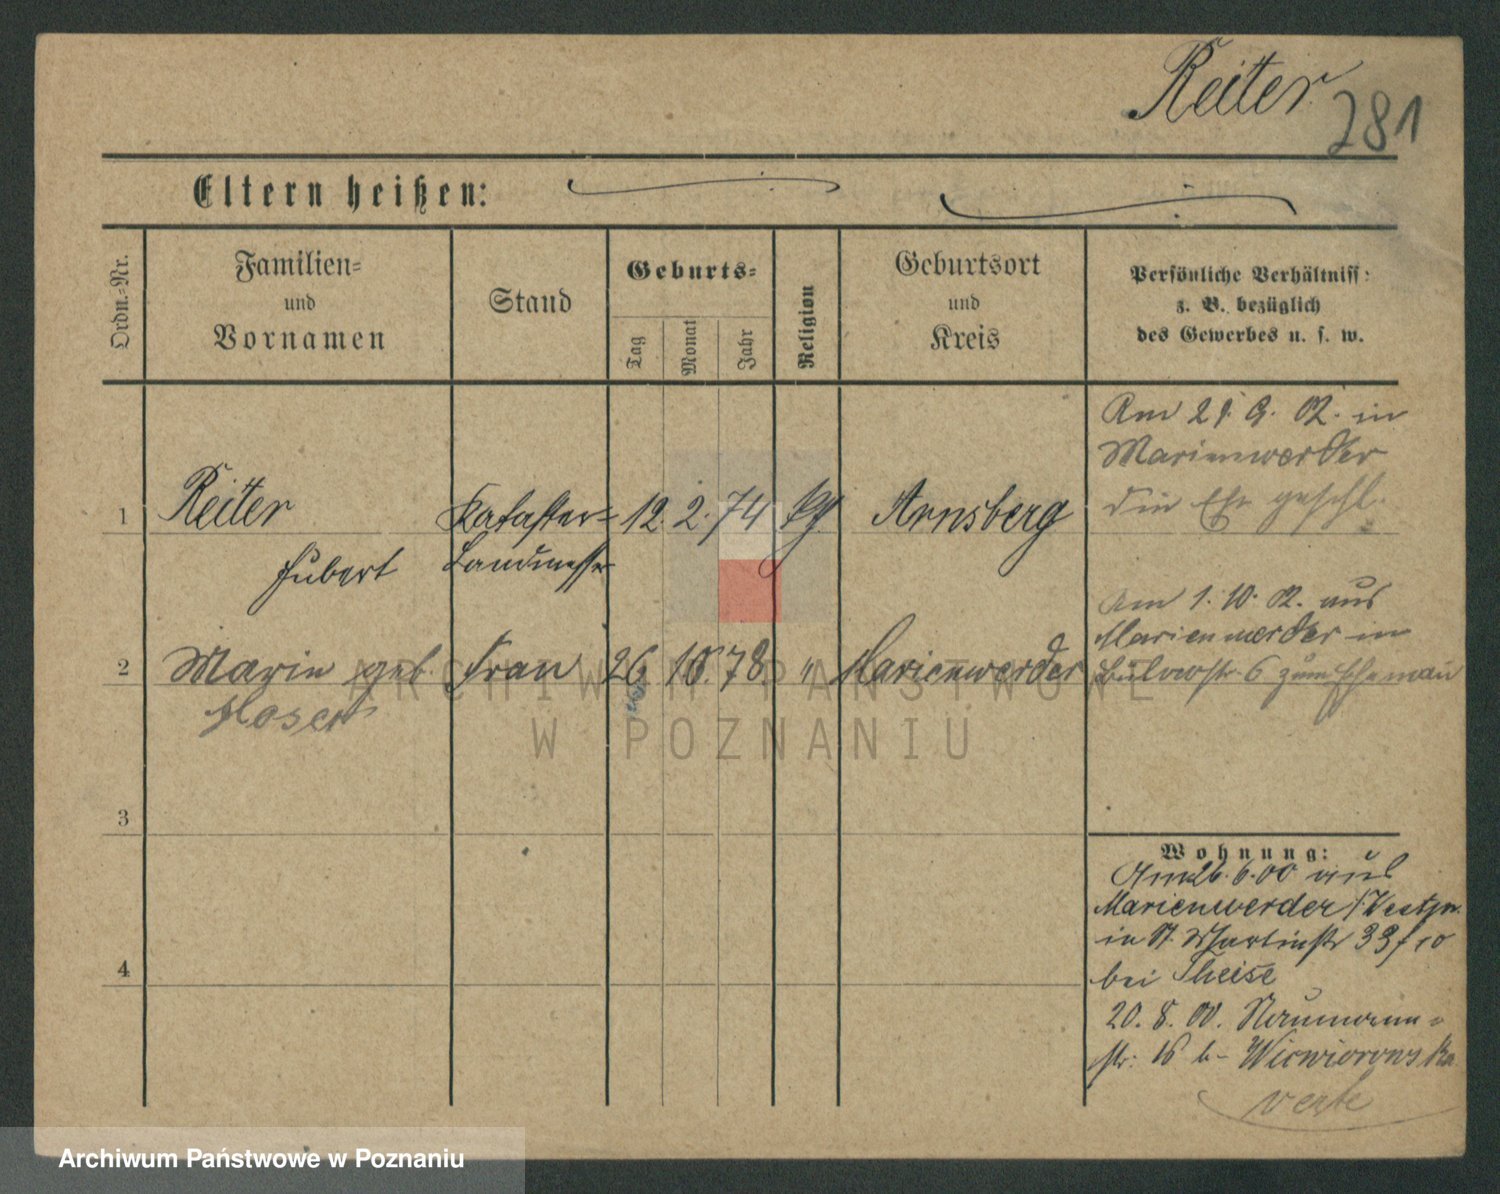 Reiter
281
Eltern heißen:
Ordn.-Nr.
Familien-
und
Vornamen
Stand
Geburts-
Tag
Monat
Jahr
Religion
Geburtsort
und
Kreis
Persönliche Verhältniss:
z. B. bezüglich
des Gewerbes u. s. w.
1
Reiter
Hubert
Kataster-
Landmesser
12. 2. 74
Arnsberg
Am 29. 9. 02. in
Marienwerder
die Ehe geschl.
2
Marie geb.
Moser
Frau
26 10. 78.
"
Marienwerder
Am 1. 10. 02. aus
Marienwerder in
Bülowstr. 6 zum Ehemann
3
4
Wohnung:
Am 26. 6. 00 aus
Marienwerder /Westpr.
in St. Martinstr 33 f 10
bei Theise
20. 8. 00. Naumann-
str. 16 b-
verte
ARCHIWUM PAŃSTWOWE
W POZNANIU
Archiwum Państwowe w Poznaniu